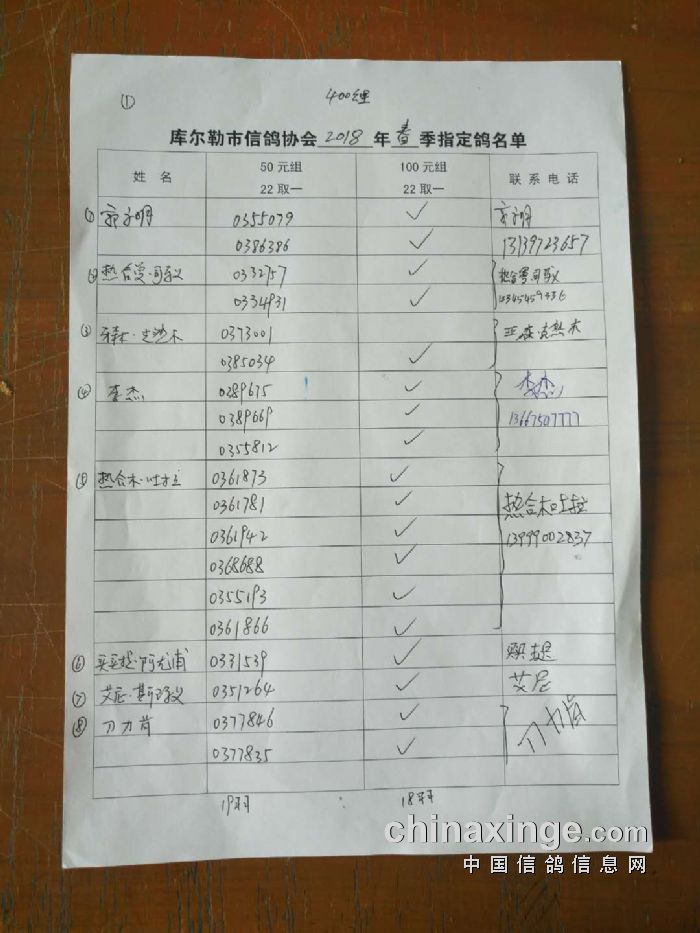 ① 400公里
库尔勒市信鸽协会 2018 年 春 季指定鸽名单
姓 名 50元组 22取一 100元组 22取一 联系电话
① 0355079 ✓
0386386 ✓ 13139723657
② 热合曼·司马义 0332757 ✓ 热合曼司马义
0334931 ✓
③ 0373001
0385034 ✓
④ 李杰 0389675 ✓ 李杰
0389669 ✓ 13667507777
0355812 ✓
⑤ 热合木·吐拉 0361873 ✓
0361781 ✓ 热合木吐拉
0361942 ✓ 13999002837
0368688 ✓
0355193 ✓
0361866 ✓
⑥ 0331539 ✓
⑦ 艾尼 0351264 ✓ 艾尼
⑧ 刀力肯 0377846 ✓ 刀力肯
0377835 ✓
19羽 18羽
chinaxinge.com
中国信鸽信息网